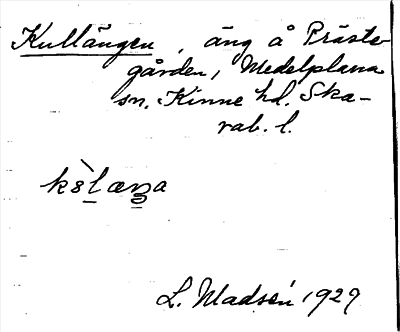 Kullängen, äng å Präste-
gården, Medelplana
sn. Kinne hd. Ska-
rab. l.
L. Madsén 1929